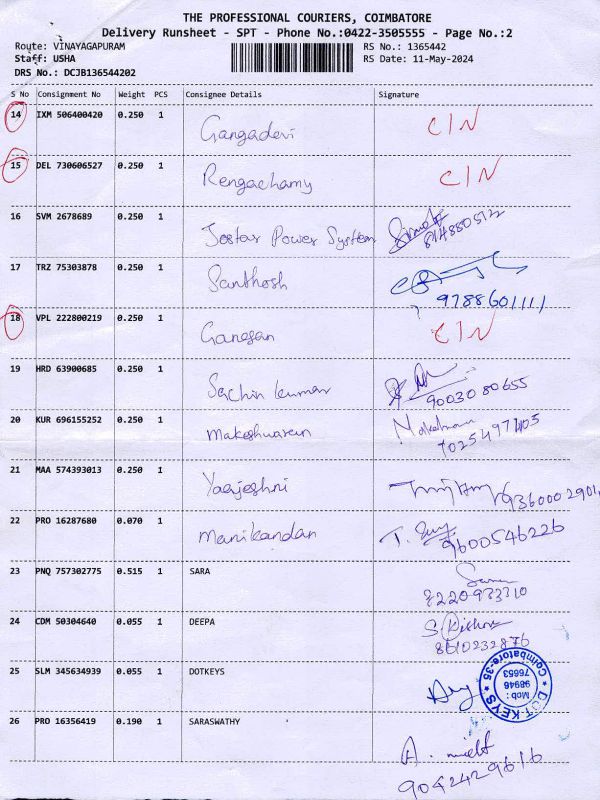 THE PROFESSIONAL COURIERS, COIMBATORE
Delivery Runsheet - SPT - Phone No.:0422-3505555 - Page No.:2
Route: VINAYAGAPURAM
RS No.: 1365442
Staff: USHA
RS Date: 11-May-2024
DRS No.: DCJB136544202
S No Consignment No Weight PCS Consignee Details Signature
14 IXM 506400420 0.250 1 Gangadevi C/N
15 DEL 730606527 0.250 1 Rengachamy C/N
16 SVM 2678689 0.250 1 Jostar Power System
17 TRZ 75303878 0.250 1 Santhosh
9788601111
18 VPL 222800219 0.250 1 Ganesan C/N
19 HRD 63900685 0.250 1 Sachin kumar
9003080655
20 KUR 696155252 0.250 1 Makeshwaran
21 MAA 574393013 0.250 1 Yaajeshni
9360002901
22 PRO 16287680 0.070 1 Manikandan
9600546226
23 PNQ 757302775 0.515 1 SARA
8220933310
24 CDM 50304640 0.055 1 DEEPA
8610232876
25 SLM 345634939 0.055 1 DOTKEYS
DOT KEYS
Coimbatore-35
Mob :
98946
76653
26 PRO 16356419 0.190 1 SARASWATHY
9042429616